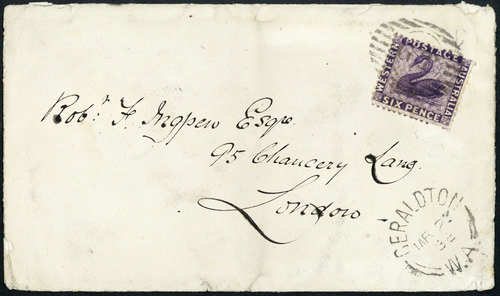 WESTERN POSTAGE AUSTRALIA
SIX PENCE
Robt. F. Ingpew Esqre
95 Chancery Lang.
London
GERALDTON
W.A